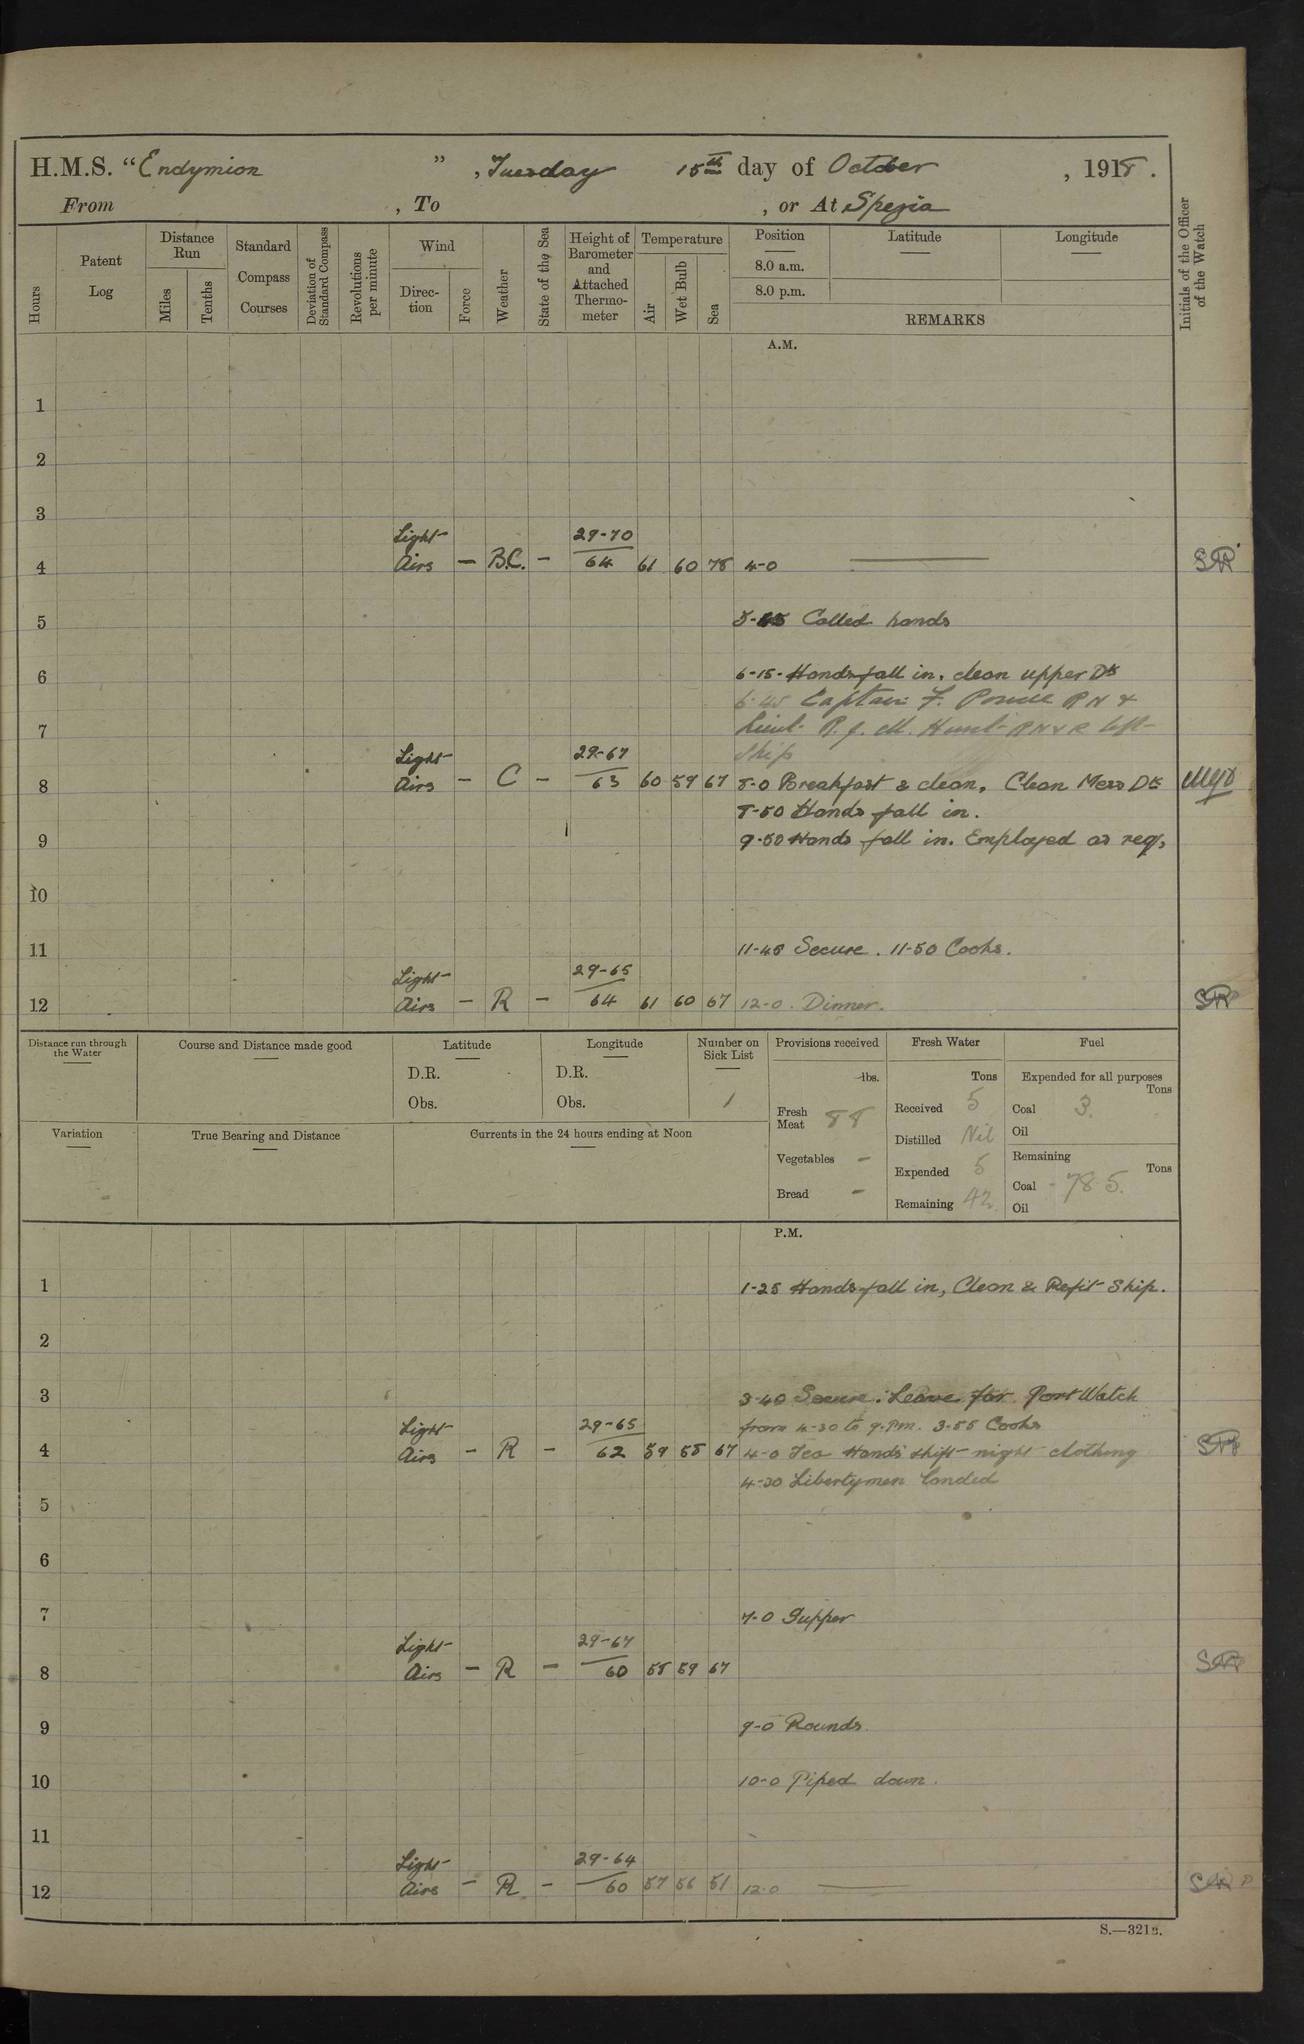 H.M.S. "Endymion", Tuesday 15th day of October, 1918.
From , To , or At Spezia
Hours
Patent Log
Distance Run
Miles
Tenths
Standard Compass Courses
Deviation of Standard Compass
Revolutions per minute
Wind
Direction
Force
Weather
State of the Sea
Height of Barometer and Attached Thermometer
Temperature
Air
Wet Bulb
Sea
Position
8.0 a.m.
8.0 p.m.
Latitude
Longitude
REMARKS
Initials of the Officer of the Watch
A.M.
1
2
3
Light 29-70
4 Airs - B.C. - 64 61 60 78 4-0
5 Called hands
6 6-15- Hands fall in, clean upper Dk
6-45 Captain F. R N &
7 Lieut. R. J. M. Hunt RNVR left
ship
Light 29-67
8 Airs - C - 63 60 59 67 8-0 Breakfast & clean, Clean Mess Dk
8-50 Hands fall in.
9 9-50 Hands fall in. Employed as req,
10
11 11-45 Secure. 11-50 Cooks.
Light 29-65
12 Airs - R - 64 61 60 67 12-0. Dinner.
Distance run through the Water
Course and Distance made good
Latitude
D.R.
Obs.
Longitude
D.R.
Obs.
Number on Sick List
1
Provisions received
lbs.
Fresh Meat 88
Vegetables -
Bread -
Fresh Water
Tons
Received 5
Distilled Nil
Expended 5
Remaining 42
Fuel
Expended for all purposes
Tons
Coal 3.
Oil
Remaining
Tons
Coal - 785.
Oil
Variation
True Bearing and Distance
Currents in the 24 hours ending at Noon
P.M.
1 1-25 Hands fall in, Clean & Refit Ship.
2
3 3-40 Secure. Leave for Port Watch
Light 29-65 from 4-30 to 9.P.m. 3-55 Cooks
4 Airs - R - 62 59 58 67 4-0 Tea Hands shift night clothing
4-30 Libertymen landed
5
6
7 7-0 Supper
Light 29-67
8 Airs - R - 60 58 59 67
9 9-0 Rounds.
10 10-0 Piped down.
11
Light 29-64
12 Airs - R - 60 57 56 51 12-0
S.—321a.